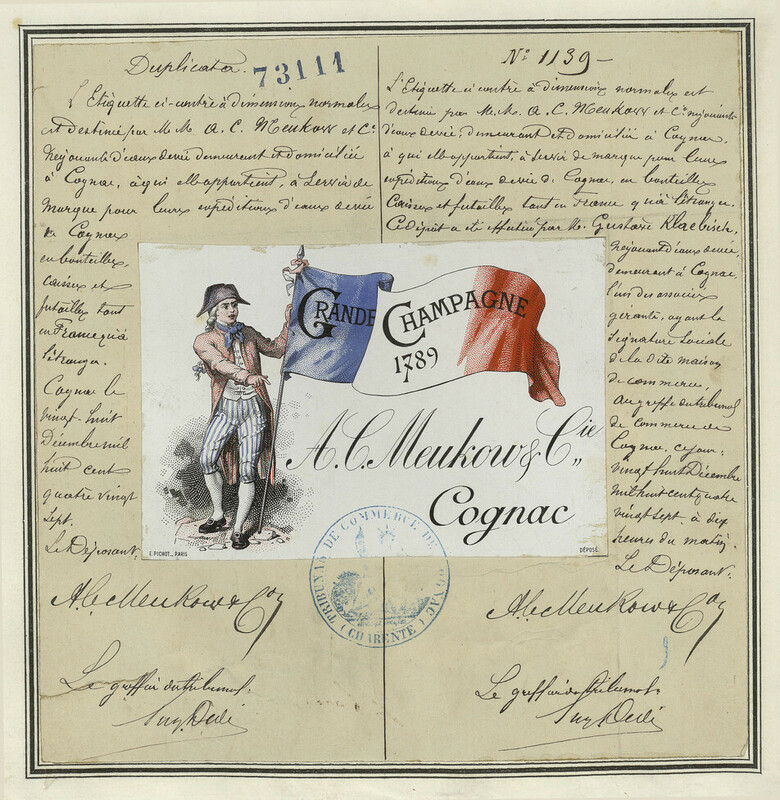 Duplicata.
73111
L'Etiquette ci-contre à dimensions normales
est destinée par M M A. C. Meukow et Cie
Négociants d'eaux de vie demeurant et domiciliés
à Cognac, à qui elle appartient, à servir de
marque pour leurs expéditions d'eaux de vie
de Cognac
en bouteilles,
caisses et
futailles tant
en France qu'à
l'étranger.
Cognac le
vingt huit
Décembre mil
huit cent
quatre vingt
sept.
Le Déposant.
A. C. Meukow & Co
Le greffier du tribunal.
No 1139 -
L'Etiquette ci-contre à dimensions normales est
destinée par M. M. A. C. Meukow et Cie négociants
d'eaux de vie, demeurant et domiciliés à Cognac,
à qui elle appartient, à servir de marque pour leurs
expéditions d'eaux de vie de Cognac, en bouteilles
Caisses et futailles tant en France qu'à l'étranger.
Ce dépôt a été effectué par M. Gustave Klaebisch,
Négociant d'eaux de vie,
demeurant à Cognac,
l'un des associés
gérants, ayant la
signature sociale
de la dite maison
de commerce,
au greffe du tribunal
de commerce de
Cognac, ce jour
vingt huit Décembre
mil huit cent quatre
vingt sept. à dix
heures du matin.
Le Déposant.
A. C. Meukow & Co
Le greffier du tribunal.
GRANDE CHAMPAGNE
1789
A. C. Meukow & Cie
Cognac
E. PICHOT _ PARIS
DÉPOSÉ
TRIBUNAL DE COMMERCE DE COGNAC
(CHARENTE)